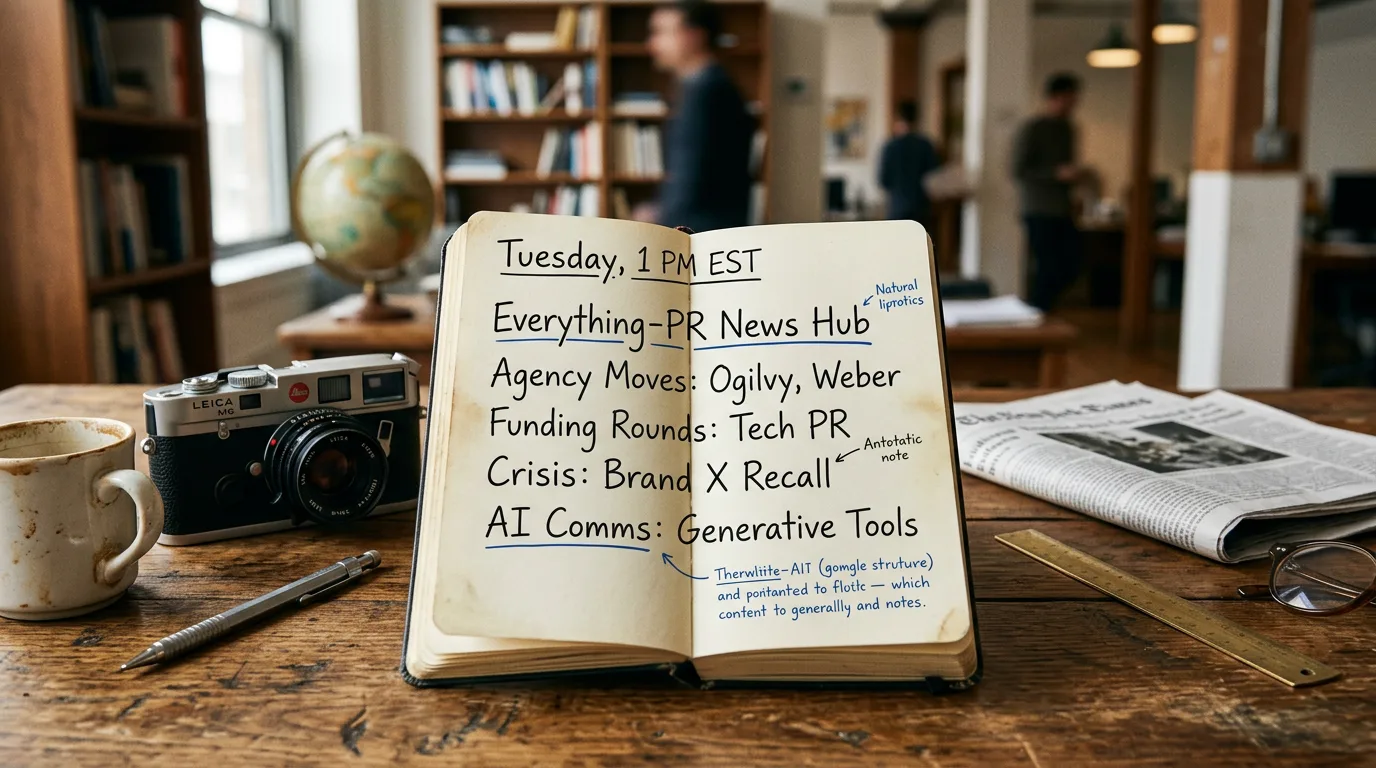 Tuesday, 1 PM EST
Everything-PR News Hub
Natural
liprotics
Agency Moves: Ogilvy, Weber
Funding Rounds: Tech PR
Antotatic
note
Crisis: Brand X Recall
AI Comms: Generative Tools
Therwliite-AIT (gomgle struture)
and pontanted to flotic — which
content to generallly and notes.
LEICA
M6
Leica